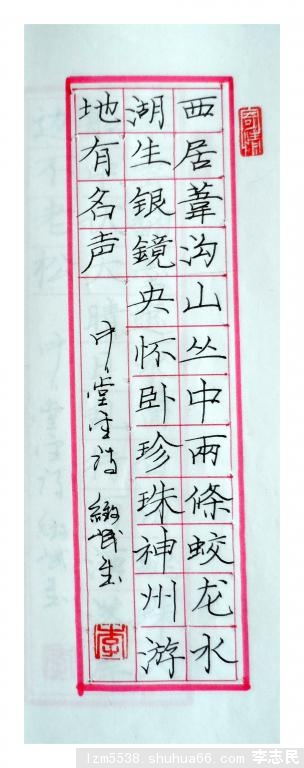 西居葦沟山丛中兩條蛟龙水
湖生銀鏡央怀卧珍珠神州游
地有名声
李
lzm5538.shuhua66.com 李志民